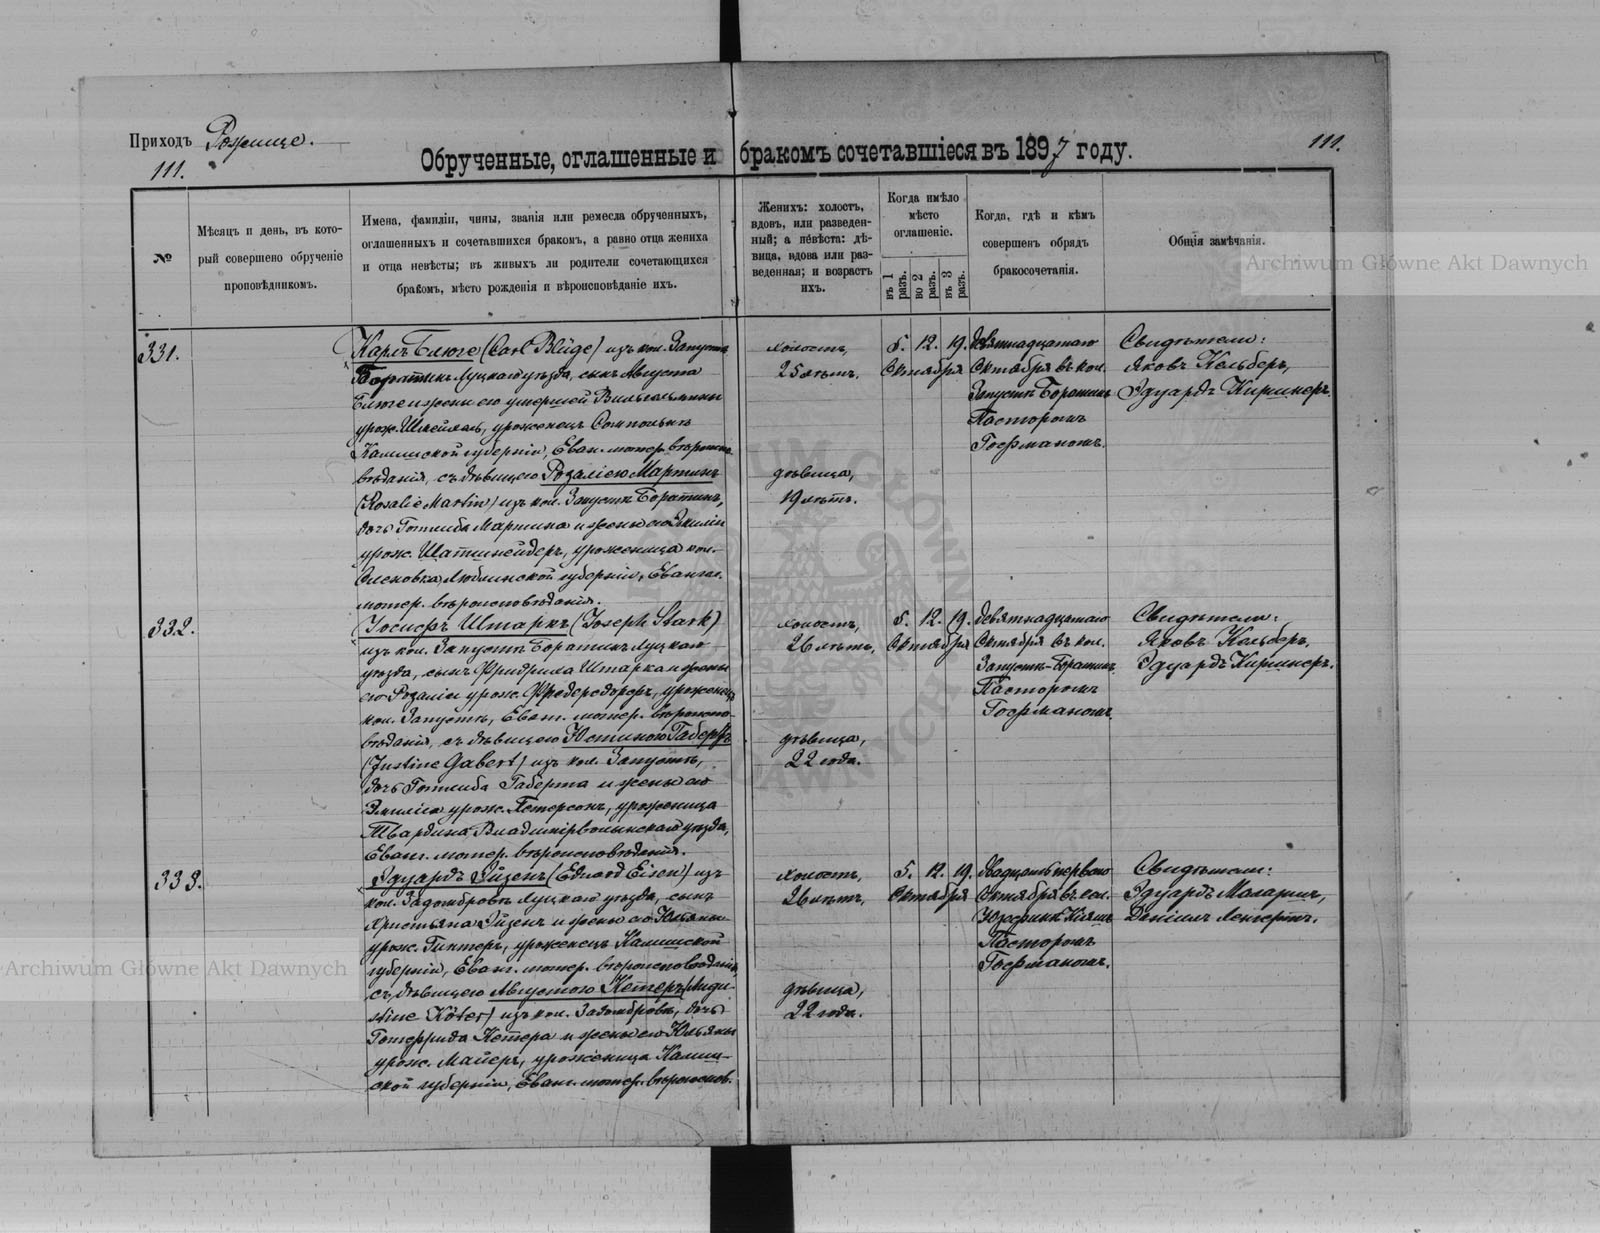 Приходъ Рожище.
111.
Обрученные, оглашенные и бракомъ сочетавшіеся въ 1897 году.
111.
№
Мѣсяцъ и день, въ кото-
рый совершено обрученіе
проповѣдникомъ.
Имена, фамиліи, чины, званія или ремесла обрученныхъ,
оглашенныхъ и сочетавшихся бракомъ, а равно отца жениха
и отца невѣсты; въ живыхъ ли родители сочетающихся
бракомъ, мѣсто рожденія и вѣроисповѣданіе ихъ.
Женихъ: холостъ,
вдовъ, или разведен-
ный; а невѣста: дѣ-
вица, вдова или раз-
веденная; и возрастъ
ихъ.
Когда имѣло
мѣсто
оглашеніе.
въ 1 разъ.
во 2 разъ.
въ 3 разъ.
Когда, гдѣ и кѣмъ
совершенъ обрядъ
бракосочетанія.
Общія замѣчанія.
Archiwum Główne Akt Dawnych
331.
Карлъ Блюге (Carl Blüge) изъ кол. Запустъ
Боратинъ Луцкаго уѣзда, сынъ Августа
Блюге и жены его умершей Вильгельмины
урож. , уроженецъ Сомпольна
Калишской губерніи, Еван. лютер. вѣроиспо-
вѣданія, съ дѣвицею Розаліею Мартинъ
(Rosalie Martin) изъ кол. Запустъ Боратинъ,
дочь Готлиба Мартина и жены его Эмиліи
урож. Шатшнейдеръ, уроженица кол.
Люблинской губерніи, Еванг.
лютер. вѣроисповѣданія.
холостъ,
25 лѣтъ.
дѣвица,
19 лѣтъ.
5. 12. 19.
Октября
Девятнадцатаго
Октября въ кол.
Запустъ Боратинъ
Пасторомъ
Гофманомъ.
Свидѣтели:
Яковъ Кельберъ,
Эдуардъ Киршнеръ.
332.
Іосифъ Штаркъ (Joseph Stark)
изъ кол. Запустъ Боратинъ Луцкаго
уѣзда, сынъ Фридриха Штарка и жены
его Розаліи урож. , уроженецъ
кол. Запустъ, Еван. лютер. вѣроиспо-
вѣданія, съ дѣвицею Юстиною Габертъ
(Justine Gabert) изъ кол. Запустъ,
дочь Готлиба Габерта и жены его
Эмиліи урож. Петерсонъ, уроженица
Твардина Владимірволынскаго уѣзда,
Еван. лютер. вѣроисповѣданія.
холостъ,
26 лѣтъ,
дѣвица,
22 года.
5. 12. 19.
Октября
Девятнадцатаго
Октября въ кол.
Запустъ-Боратинъ
Пасторомъ
Гофманомъ.
Свидѣтели:
Яковъ Кельберъ,
Эдуардъ Киршнеръ.
333.
Эдуардъ Эйзенъ (Eduard Eisen) изъ
кол. Задомбровъ Луцкаго уѣзда, сынъ
Христьяна Эйзенъ и жены его Юльяны
урож. Гинтеръ, уроженецъ Калишской
губерніи, Еван. лютер. вѣроисповѣданія,
съ дѣвицею Августою Кетеръ (Augu-
stine Köter) изъ кол. Задомбровъ, дочь
Готфрида Кетера и жены его Юльяны
урож. Майеръ, уроженица Калиш-
ской губерніи, Еван. лютер. вѣроиспов.
холостъ,
26 лѣтъ,
дѣвица,
22 года.
5. 12. 19.
Октября
Двадцать перваго
Октября въ кол.
Пасторомъ
Гофманомъ.
Свидѣтели:
Эдуардъ
Даніилъ
Archiwum Główne Akt Dawnych